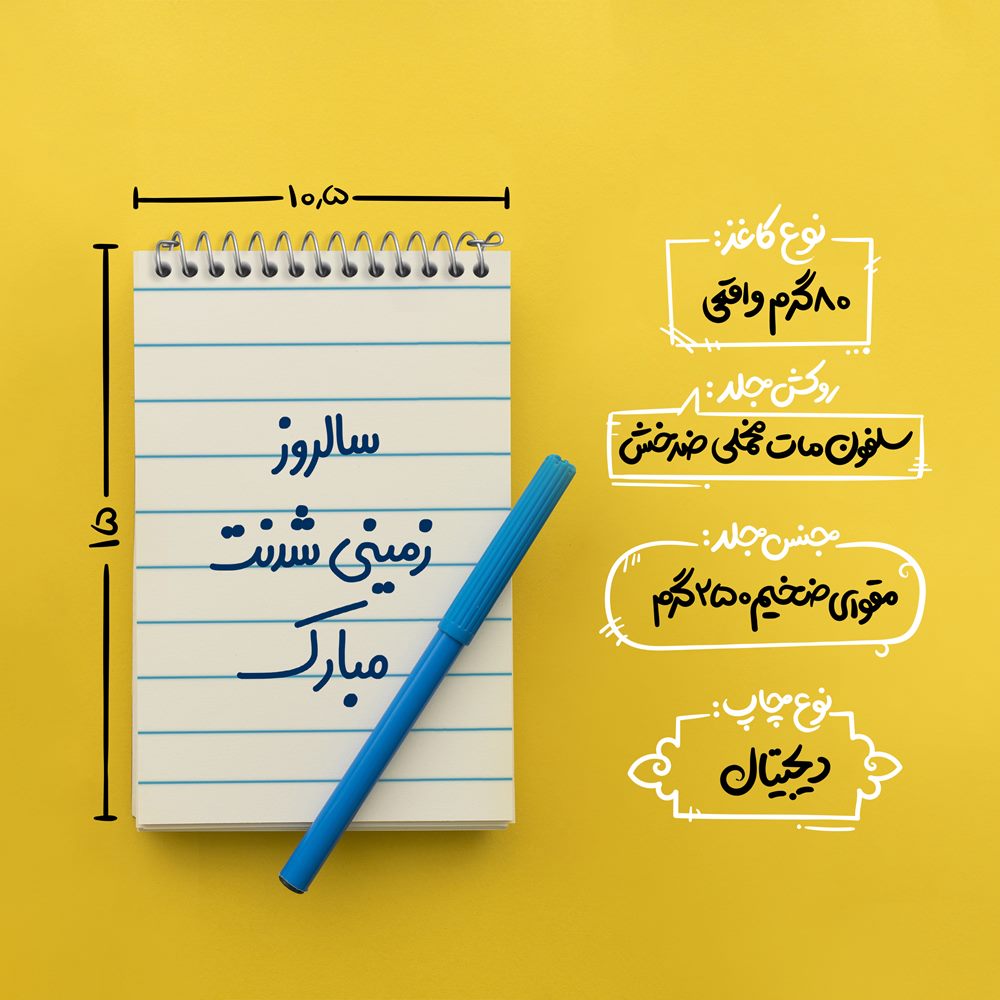 ۱۰٫۵
۱۵
سالروز
زمینی شدنت
مبارک
نوع کاغذ:
۸۰گرم واقعی
روکش جلد:
سلفون مات مخملی ضدخش
جنس جلد:
مقوای ضخیم ۲۵۰گرم
نوع چاپ:
دیجیتال